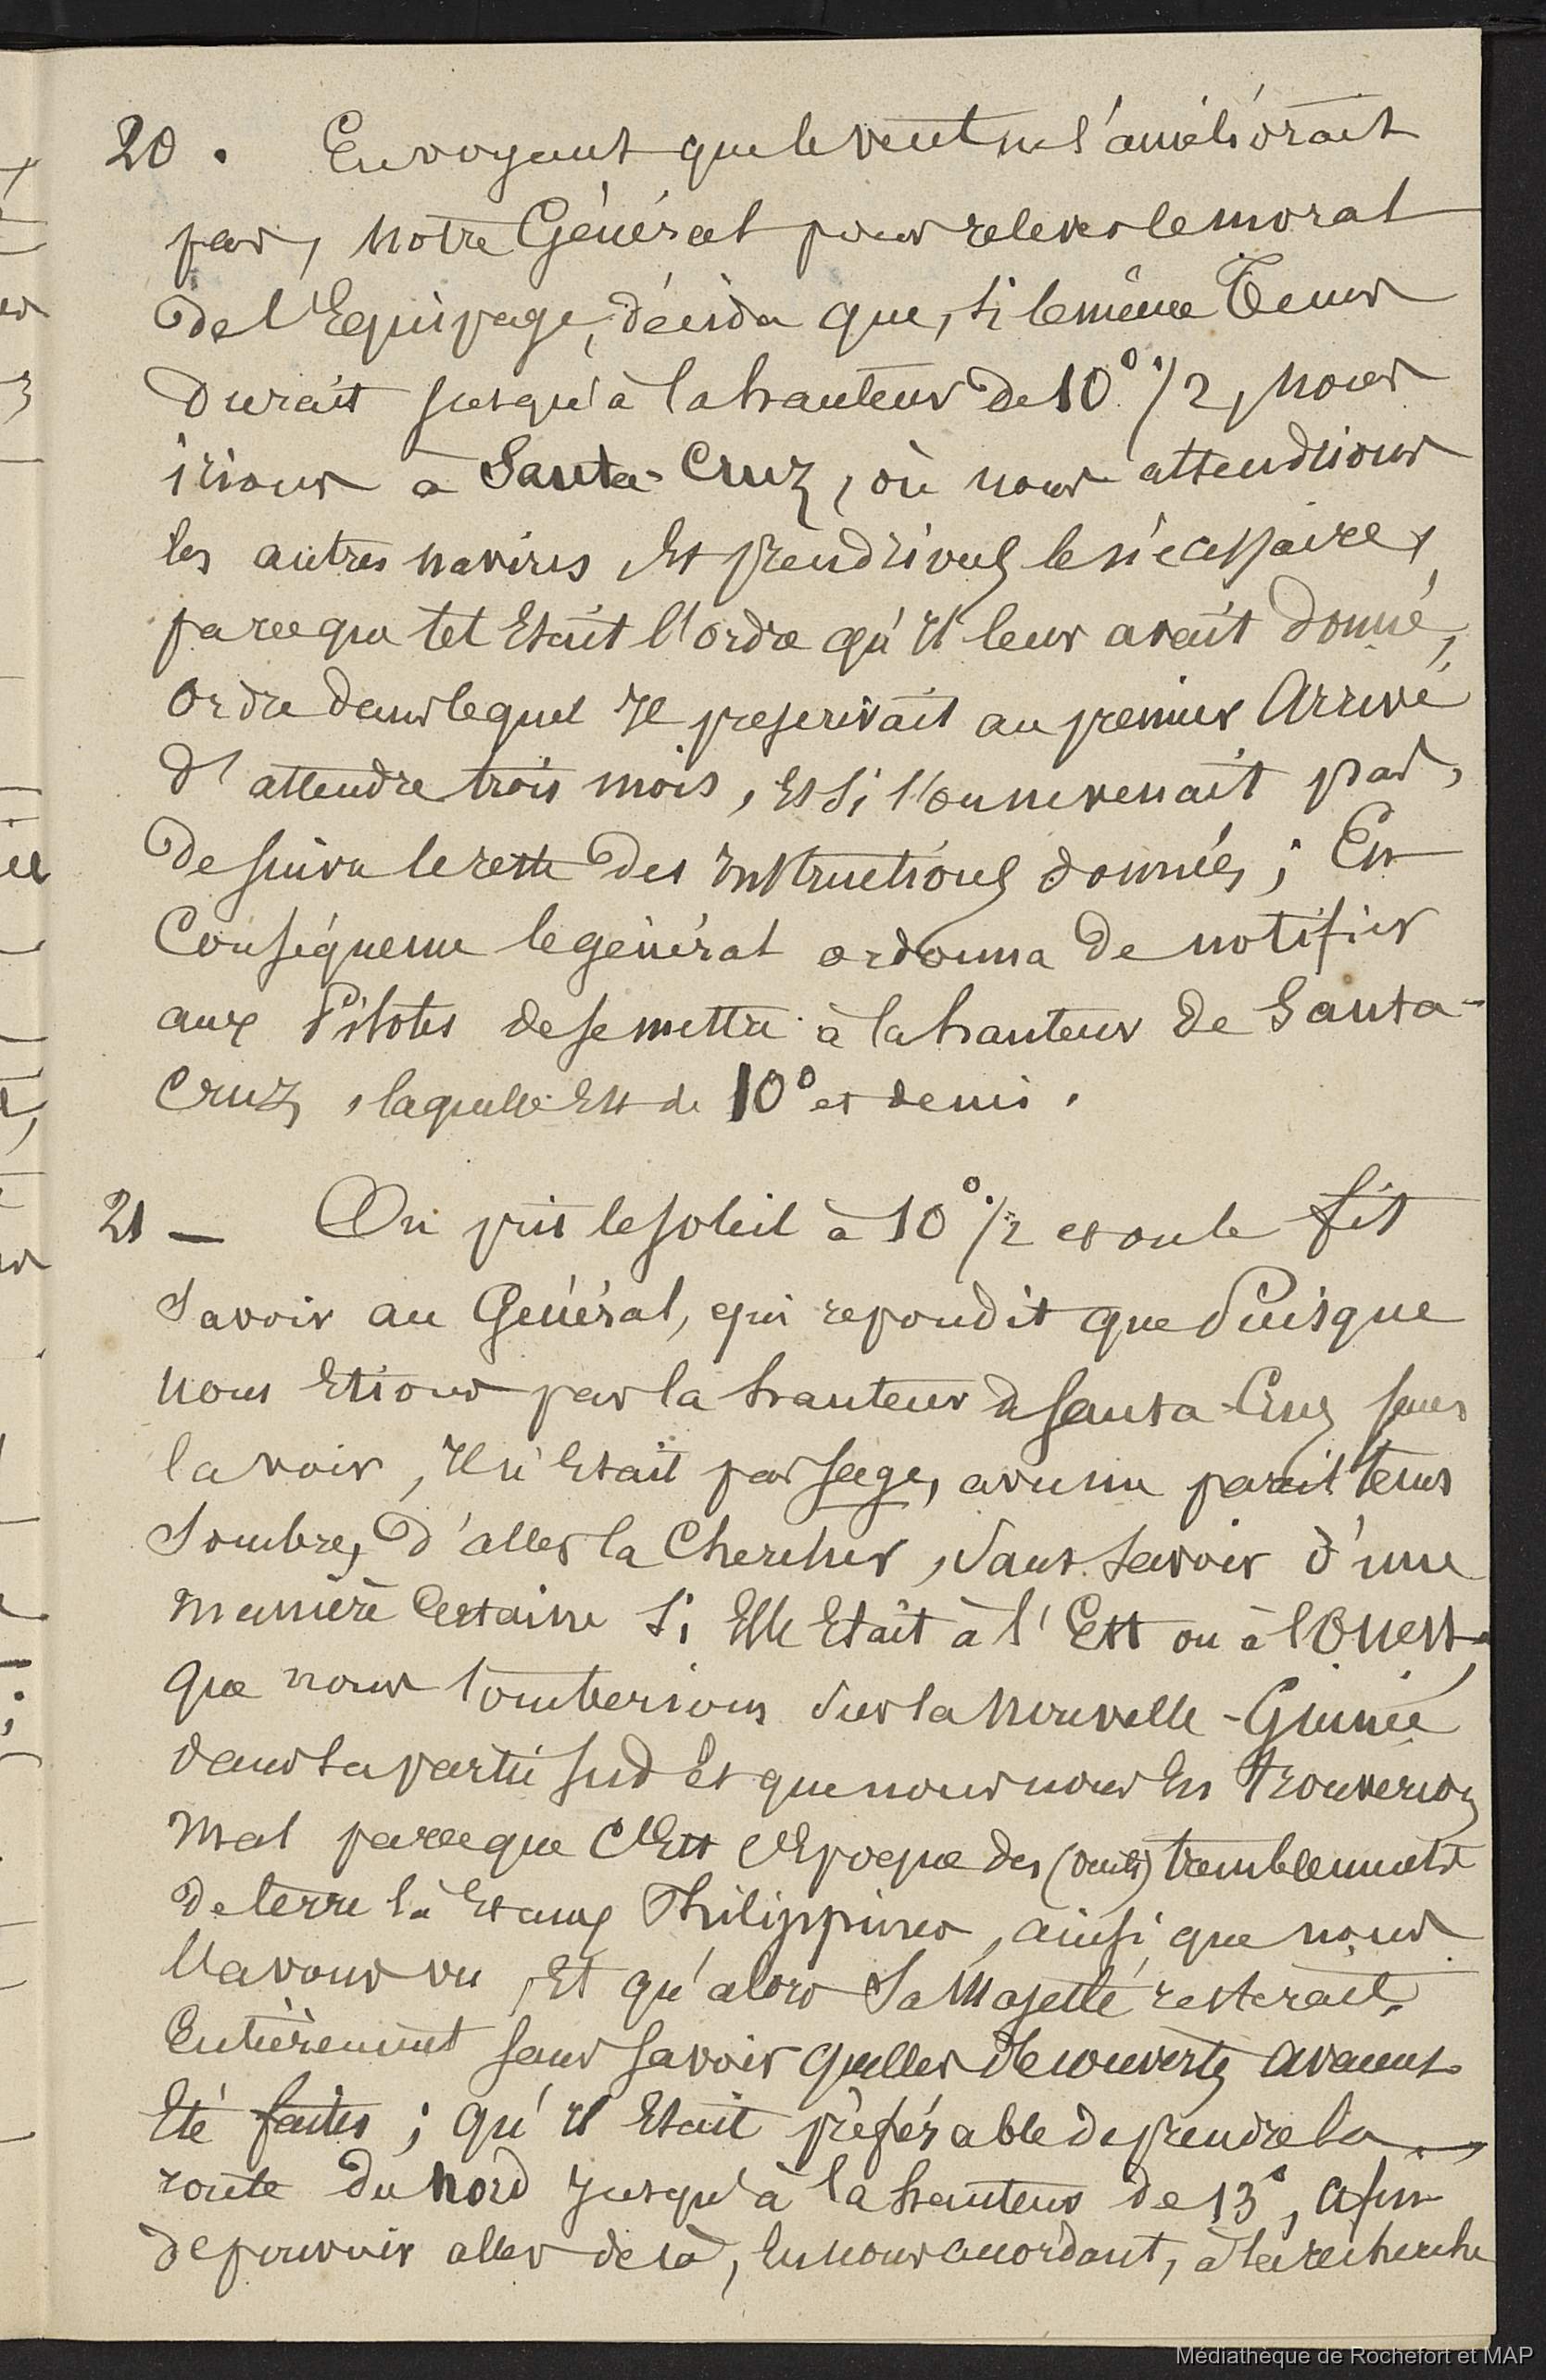 20. En voyant que le vent ne s'améliorait
pas, notre Général pour relever le moral
de l'Equipage, décida que, si le même tems
durait jusqu'à la hauteur de 10° 1/2, nous
irions à Santa-Cruz, où nous attendrions
les autres navires et prendrions le nécessaire,
parceque tel était l'ordre qu'il leur avait donné,
ordre dans lequel il prescrivait au premier arrivé
d'attendre trois mois, et si l'on ne venait pas,
de suivre le reste des instructions données; En
conséquence le général ordonna de notifier
aux Pilotes de se mettre à la hauteur de Santa-
Cruz, laquelle est de 10° et demi.
21 — On prit le soleil à 10° 1/2 et on le fit
savoir au Général, qui repondit que Puisque
nous étions par la hauteur de Santa-Cruz sans
la voir, il n'était pas sage, avec un pareil tems
sombre, d'aller la chercher, sans savoir d'une
manière certaine si elle était à l'Est ou à l'Ouest,
que nous tomberions sur la Nouvelle-Guinée
dans sa partie sud et que nous nous en trouverions
mal parceque c'est l'Epoque des (vents) tremblements
de terre là et aux Philippines, ainsi que nous
l'avons vu, et qu'alors Sa Majesté resterait
entièrement sans savoir quelles découvertes avaient
été faites; qu'il était préférable de prendre la
route du nord jusqu'à la hauteur de 13°, afin
de pouvoir aller de là, en nous accordant, à la recherche
Médiathèque de Rochefort et MAP